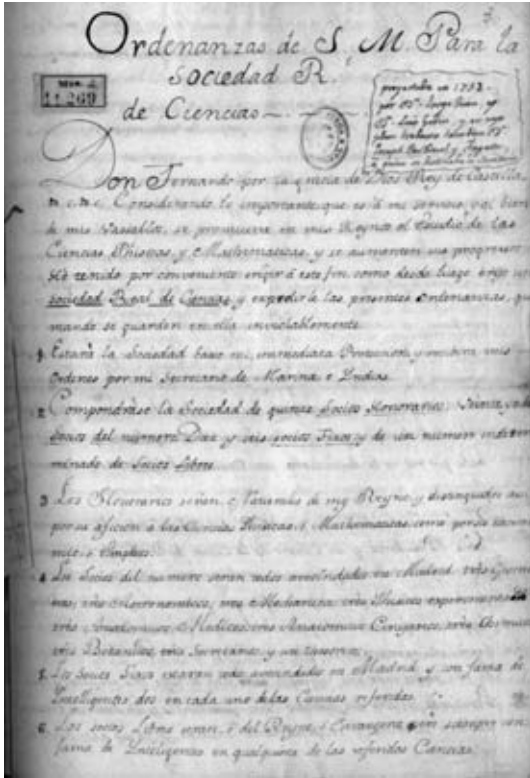 Ordenanzas de S. M. Para la
Sociedad R.
de Ciencias
11.269
proyectadas en 1753
por Dn. Jorge Juan, y
Dn. Luis Godin, y en cuyo
Don Fernando por la gracia de Dios Rey de Castilla,
&c. &c. Considerando lo importante que es á mi servicio, y al bien
de mis Vasallos, se promueva en mis Reynos el estudio de las
Ciencias Phisicas, y Mathematicas, y se aumenten sus progresos
He tenido por conveniente erigir á este fin, como desde luego erijo una
sociedad Real de Ciencias y expedirle las presentes ordenanzas, que
mando se guarden en ella inviolablemente.
1. Estará la Sociedad baxo mi immediata Proteccion, y recibirá mis
Ordenes por mi Secretario de Marina e Indias.
2. Compondrase la Sociedad de quince Socios Honorarios:
Socios del número Diez y seis socios Fixos y de un numero indeter
minado de Socios Libres.
3. Los Honorarios serán Naturales de mis Reynos y distinguidos
por su aficion á las Ciencias Phisicas, ó Mathematicas, como por su
empleos.
4. Los Socios del numero seran todos avecindados en Madrid, tres Geome
tras, tres Astronomicos, tres Mechanicos tres Phisicos experimentales
tres Anatomicos Medicos, tres Anatomicos Cirujanos, tres Chimicos
tres Botanicos, tres Secretarios, y un tesorero.
5. Los Socios Fixos estaran todos avecindados en Madrid y con fama de
Inteligentes dos en cada una de las Ciencias referidas.
6. Los socios Libres seran, ó del Reyno, ó Extrangeros con
fama de Inteligentes en qualquiera de las referidas Ciencias.